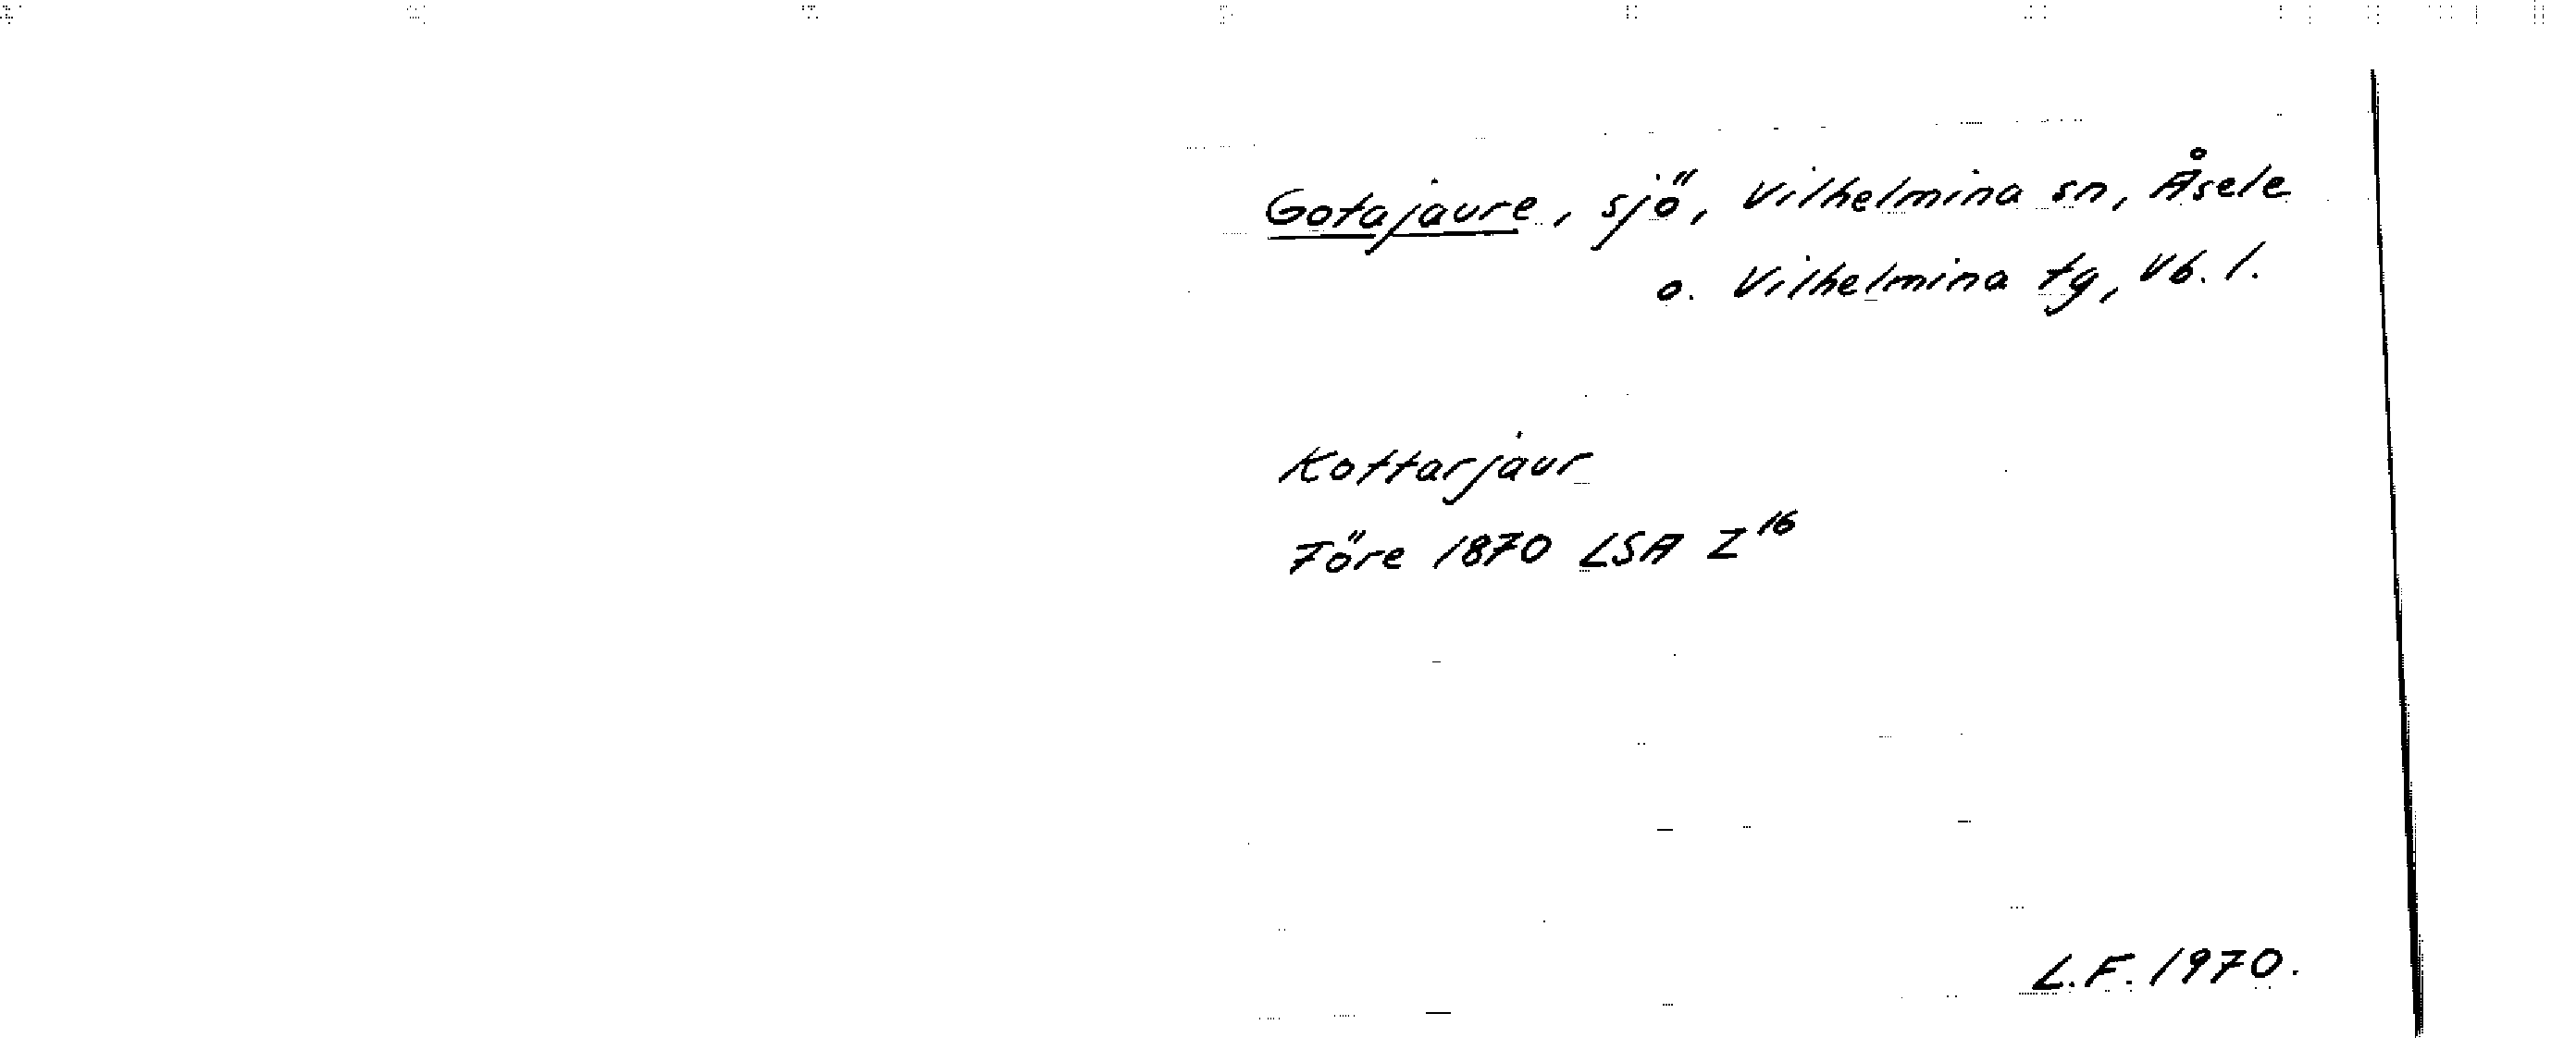 Gotajaure, sjö, Vilhelmina sn, Åsele
o. Vilhelmina tg, Vb. l.
Kottarjaur
Före 1870 LSA Z16
L.F. 1970.